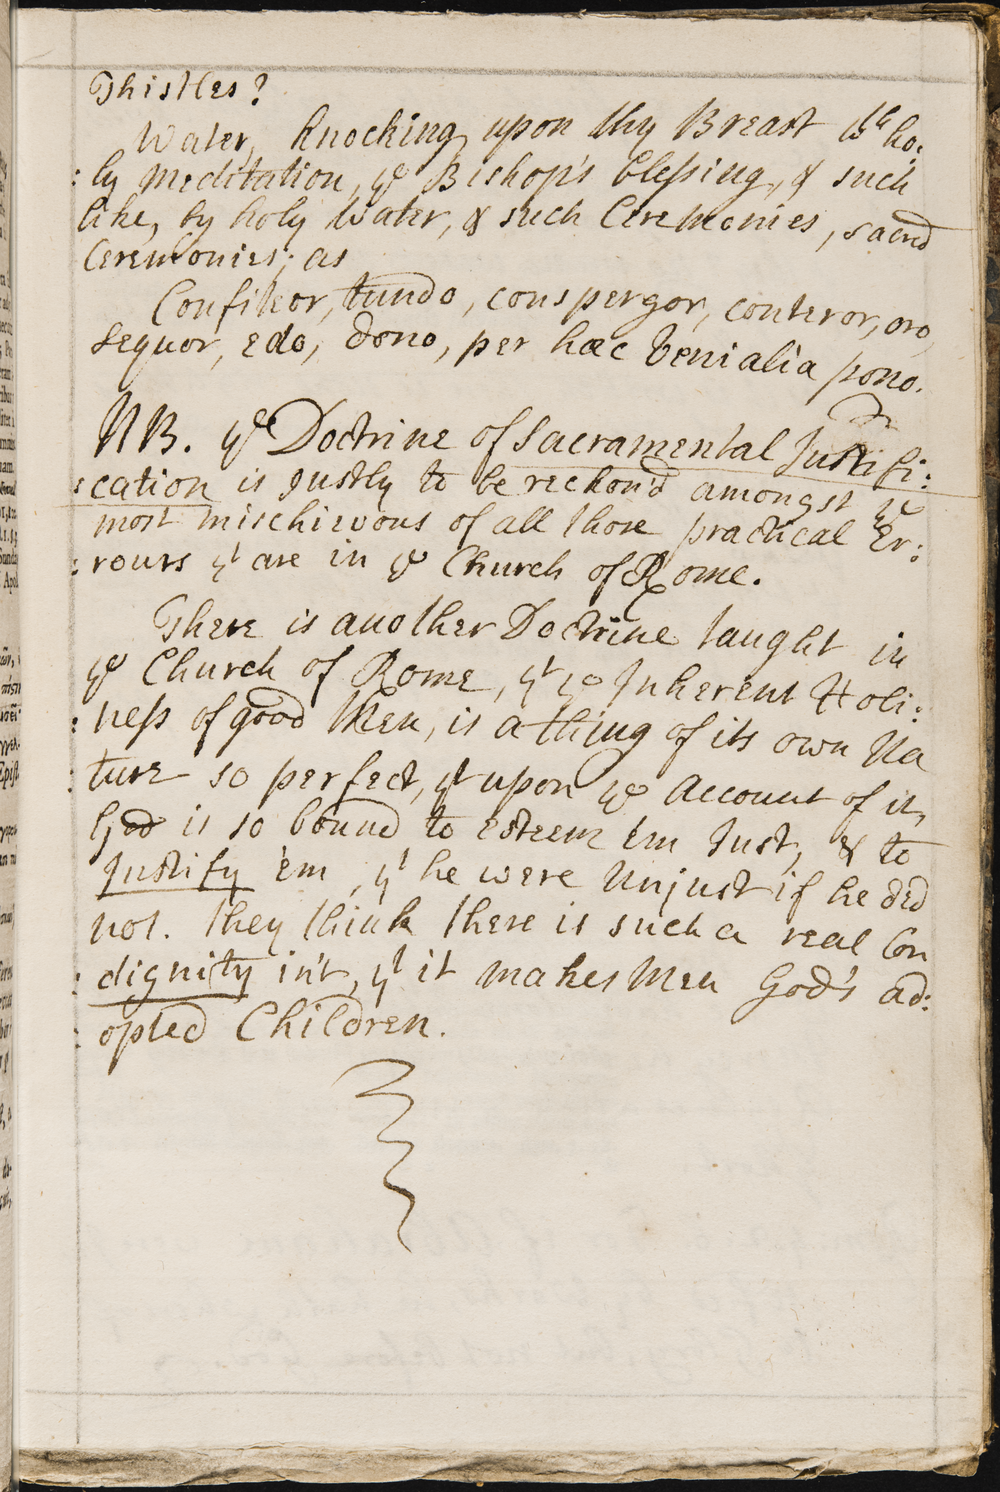 Thistles?
Water, knocking upon thy Breast wth ho:
:ly meditation, ye Bishop's blessing, & such
like, by holy Water, & such Ceremonies, sacred
Ceremonies; as
Confiteor, tundo, conspergor, conteror, oro,
sequor, edo, dono, per hæc venialia pono.
NB. ye Doctrine of Sacramental Justifi:
:cation is justly to be reckon'd amongst ye
most mischievous of all those practical Er:
:rours yt are in ye Church of Rome.
There is another Doctrine taught in
ye Church of Rome, yt ye Inherent Holi:
:ness of good Men, is a thing of its own Na
:ture so perfect, yt upon ye Account of it,
God is so bound to esteem 'em Just, & to
Justify 'em, yt he were Unjust if he did
not. they think there is such a real Con
:dignity in't, yt it makes Men God's ad:
:opted Children.